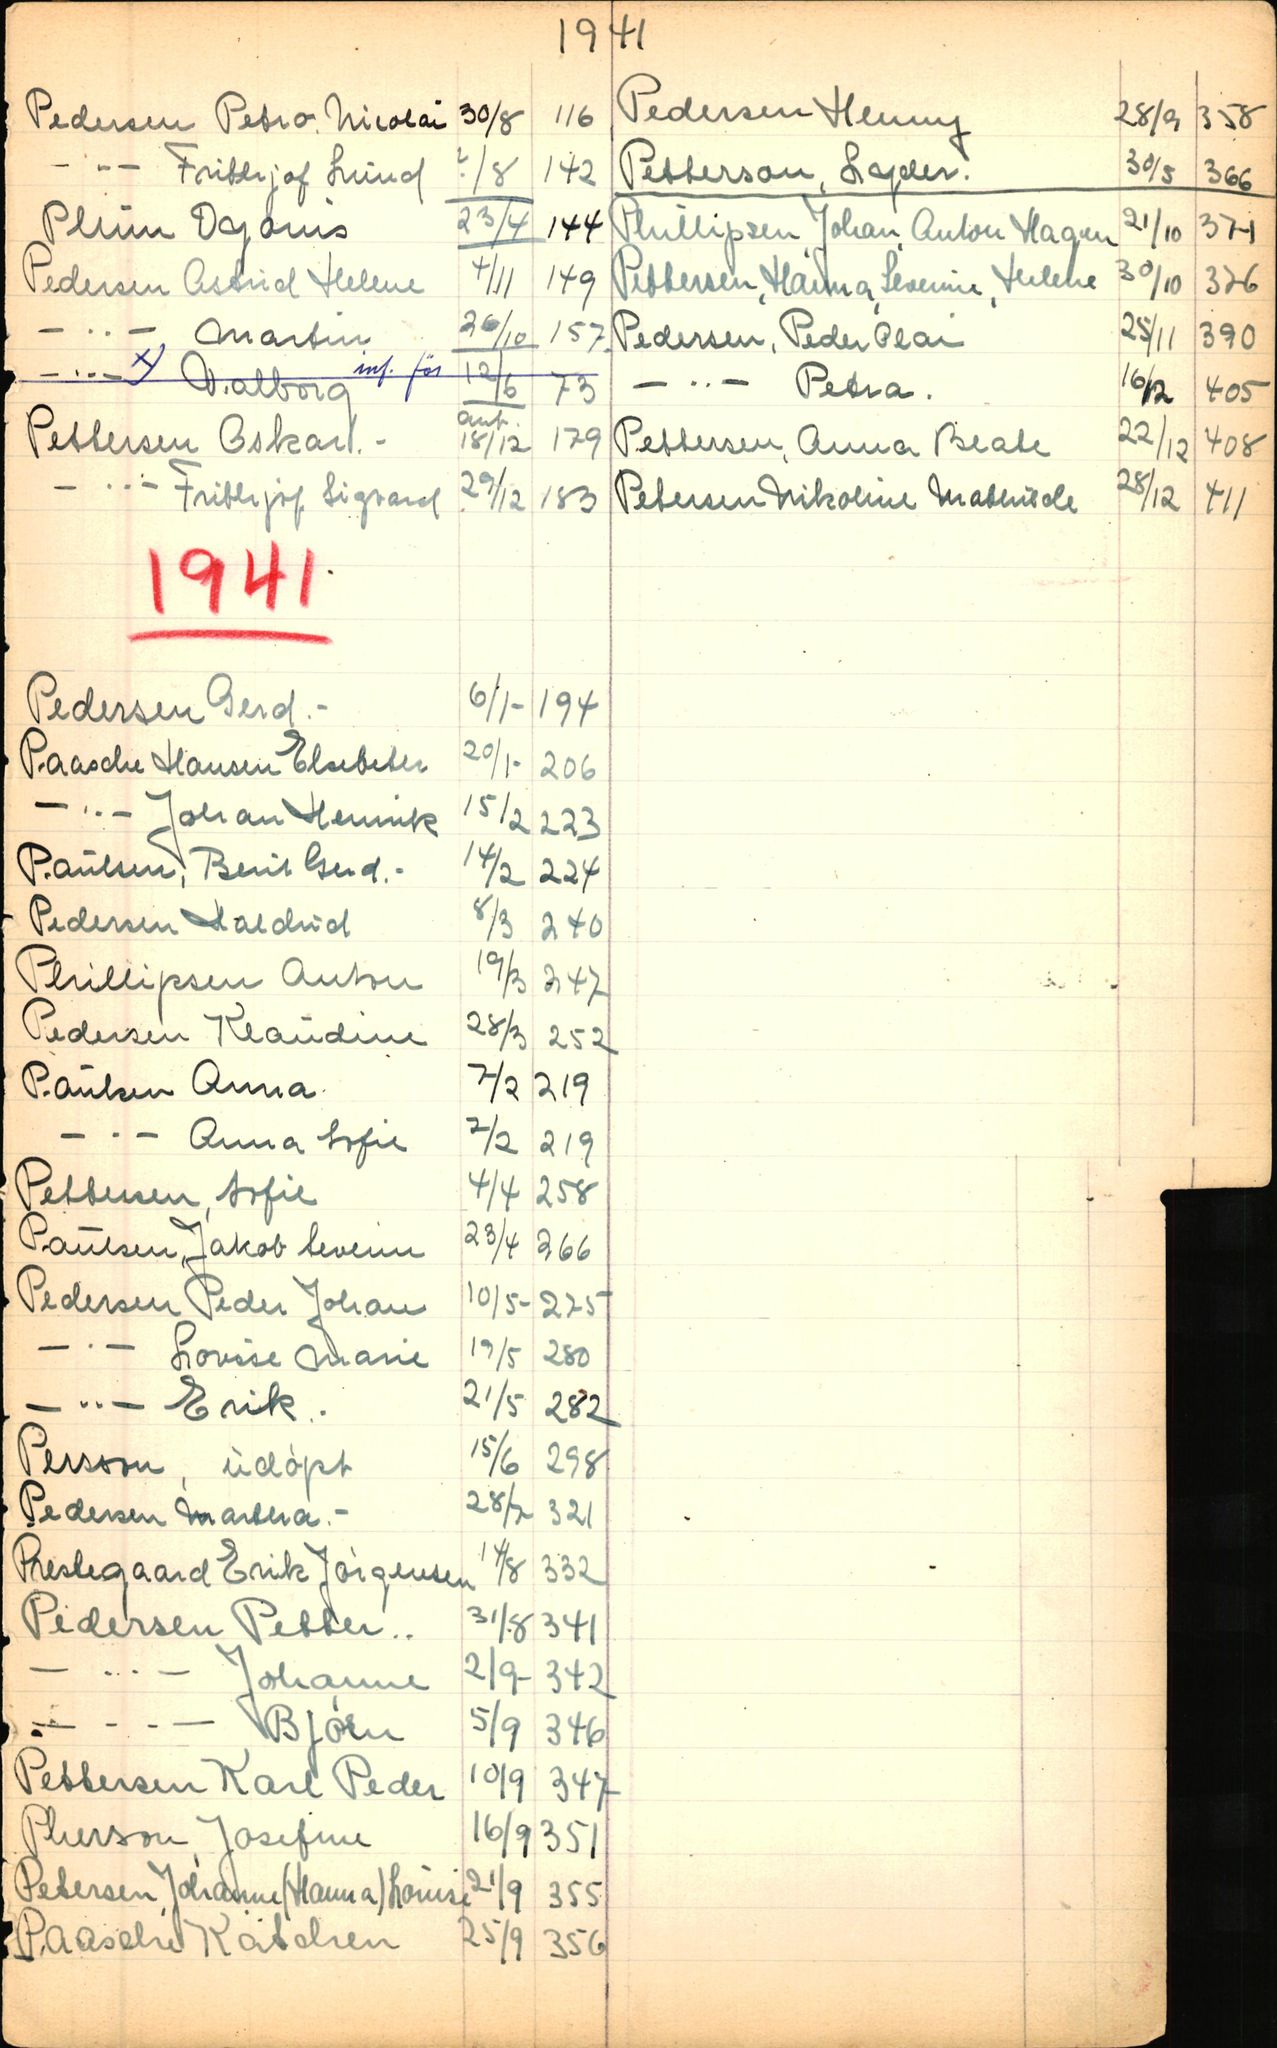 1941
Pedersen Petro. Nicolai 30/8 116
— ·· — Frithjof Lund ?/8 142
Plum 23/4 144
Pedersen Astrid Helene 4/11 149
— ·· — Martin 26/10 157
— ·· — x) Valborg inf. før 12/6 73
Pettersen Oskar.- ant. 18/12 179
— ·· — Frithjof Sigvard 29/12 183
1941
Pedersen Gerd.- 6/1- 194
Paasche Hansen Elsebeth 20/1- 206
— ·· — Johan Henrik 15/2 223
Paulsen, Berit Gerd.- 14/2 224
Pedersen Haldrid 8/3 240
Phillipsen Anton 19/3 247
Pedersen Klaudine 28/3 252
Paulsen Anna 7/2 219
— · — Anna Sofie 7/2 219
Pettersen, Sofie 4/4 258
Paulsen, Jakob Severin 23/4 266
Pedersen Peder Johan 10/5- 275
— · — Lovise Marie 19/5 280
— ·· — Erik.. 21/5 282
Persson, udøpt 15/6 298
Pedersen Martha.- 28/7 321
Prestegaard Erik Jørgensen 14/8 332
Pedersen Petter.. 31/8 341
— ·· — Johanne 2/9- 342
— · · — Bjørn 5/9 346
Pettersen Karl Peder 10/9 347
Pherson, Josefine 16/9 351
Petersen, Johanne (Hanna) Louise 21/9 355
Paasche Kätchen 25/9 356
Pedersen Henny 28/9 358
Petterson, Lyder. 30/5 366
Phillipsen, Johan, Anton Hagen 21/10 371
Pettersen, Hanna, Severine, Helene 30/10 376
Pedersen, Peder Olai 25/11 390
— ·· — Petra. 16/12 405
Pettersen, Anna Beate 22/12 408
Petersen Nikoline Mathilde 28/12 411